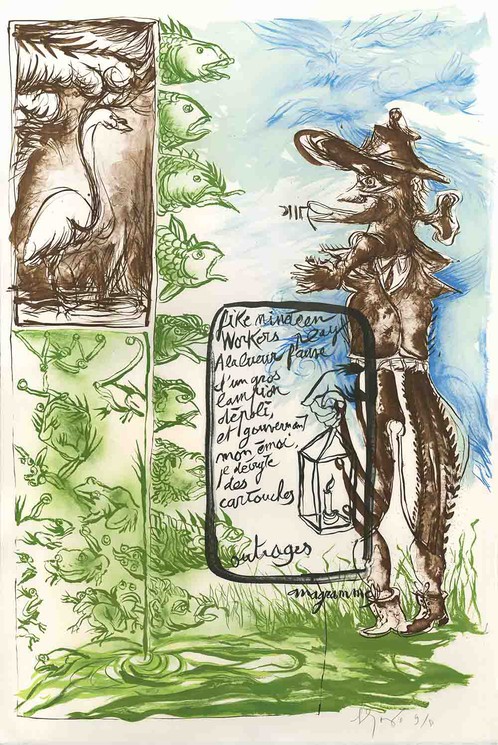 like minoean
Workers play
A la lueur fausse
d'un gros
lampion
dépoli,
et gouvernant
mon émoi,
je décrypte
des
cartouches
outrages
anagramme